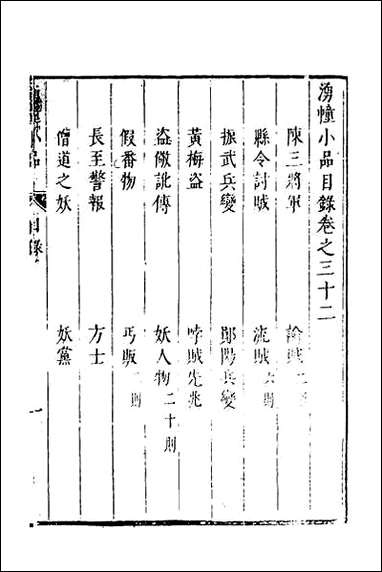 湧幢小品目錄卷之三十二
陳三將軍 論賊
縣令討賊 流賊 六則
振武兵變 鄖陽兵變
黃梅盜 哱賊先兆
盜倣訛傳 妖人物 二十則
假番物 丐販 二則
長至警報 方士
僧道之妖 妖黨
小品 目錄 一